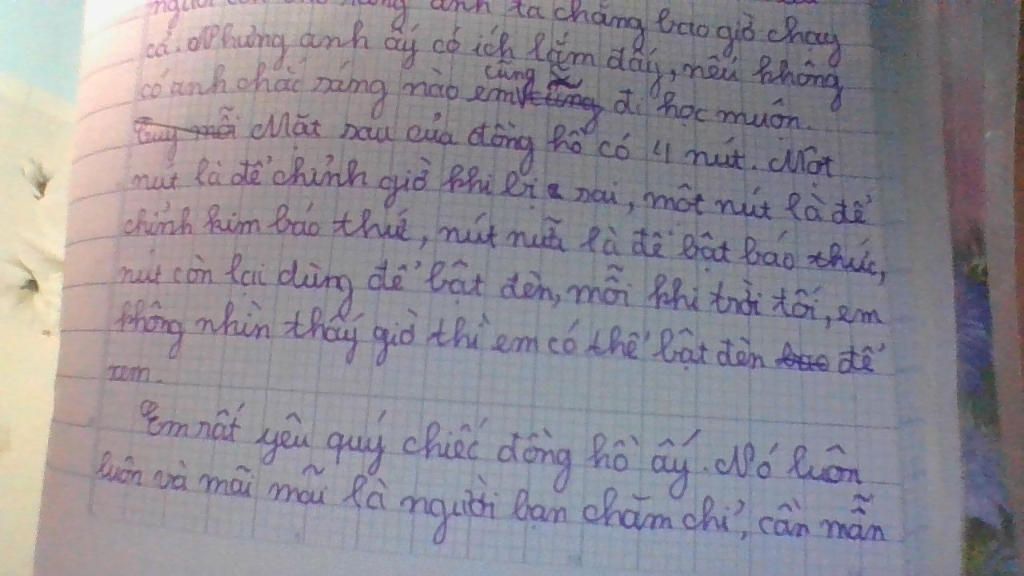 anh ta chẳng bao giờ chạy
cả. Nhưng anh ấy có ích lắm đấy, nếu không
có anh chắc sáng nào em cũng đi học muộn.
Mặt sau của đồng hồ có 4 nút. Một
nút là để chỉnh giờ khi bị sai, một nút là để
chỉnh kim báo thức, nút nữa là để bật báo thức,
nút còn lại dùng để bật đèn, mỗi khi trời tối, em
không nhìn thấy giờ thì em có thể bật đèn để
xem.
Em rất yêu quý chiếc đồng hồ ấy. Nó luôn
luôn và mãi mãi là người bạn chăm chỉ, cần mẫn